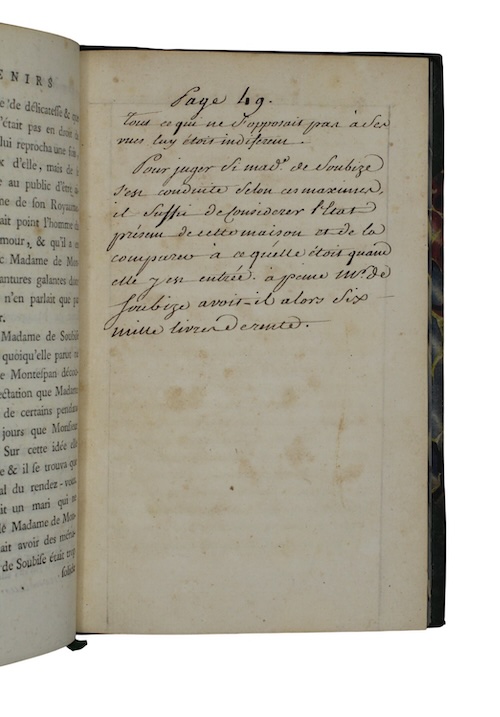 ENIRS
de délicatesse & que
'était pas en droit de
lui reprocha une fois
x d'elle, mais de
e au public d'être
ne de son Royaume
ait point l'homme
mour, & qu'il a
c Madame de Mon
antures galantes dont
n'en parlait que par
r.
Madame de Soubise
quoiqu'elle parut
e Montespan décou-
ectation que Madame
de certains pendans
jours que Monsieur
Sur cette idée elle
e & il se trouva que
al du rendez-vous
it un mari qui ne
lé Madame de Mon-
ait avoir des ména-
de Soubise était trop
solide
Page 49.
tout ce qui ne s'opposait pas à ses
vues luy étoit indiferent.
Pour juger Si mad.e de Soubize
s'est conduite selon ces maximes,
il Suffi de Considerer l'Etat
présent de cette maison et de la
comparer à ce quélle étoit quand
elle y est entrée. à peine Mr. de
Soubize avoit-il alors Six
mille livres de rente.